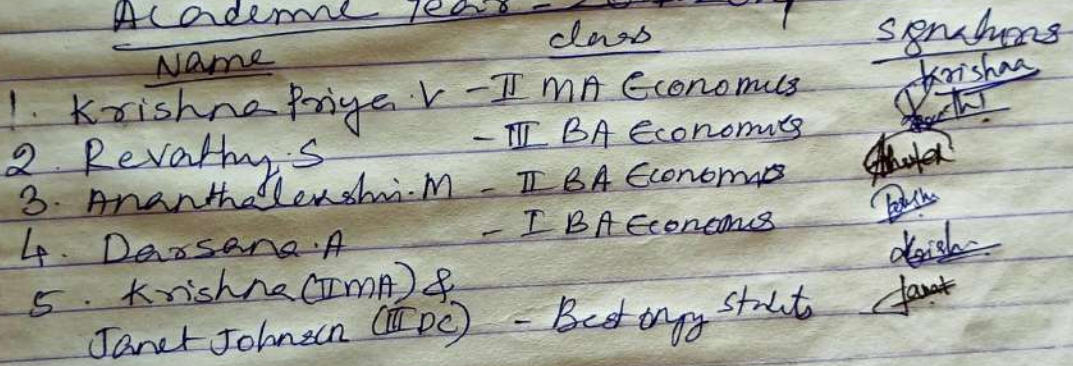 Academic Year -
Name class Signatures
1. Krishna Priya. V - II MA Economics Krishnaa
2. Revathy. S - III BA Economics
3. Ananthalekshmi. M - II BA Economics
4. Darsana. A - I BA Economics
5. Krishna (II MA) & Krish
Janet Johnson (III DC) - Best Janet